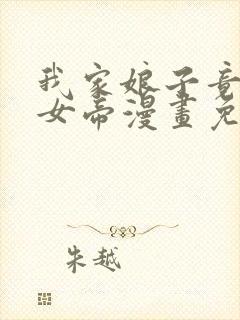 我家娘子竟
女帝漫畫免
朱越